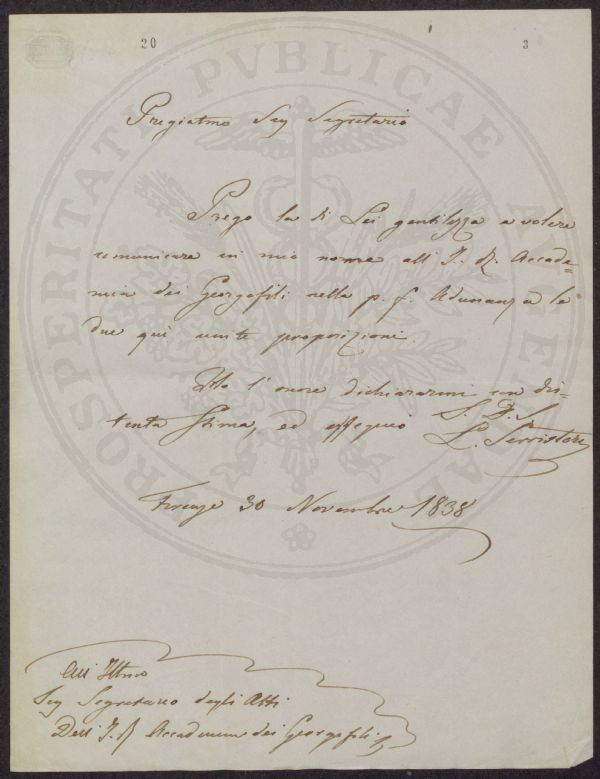 20
3
PROSPERITATI PVBLICAE AVGENDAE
Pregiatmo Sig Segretario
Prego la di Lei gentilezza a volere
comunicare in mio nome all' I. R. Accade=
mia dei Georgofili nella p. f. Adunanza le
due qui unite proposizioni.
Ho l'onore dichiararmi con dis=
tinta stima, ed ossequio S. D. S.
L. Serristori
Firenze 30 Novembre 1838
All' Illmo
Sig Segretario degli Atti
Dell' I. R. Accademia dei Georgofili